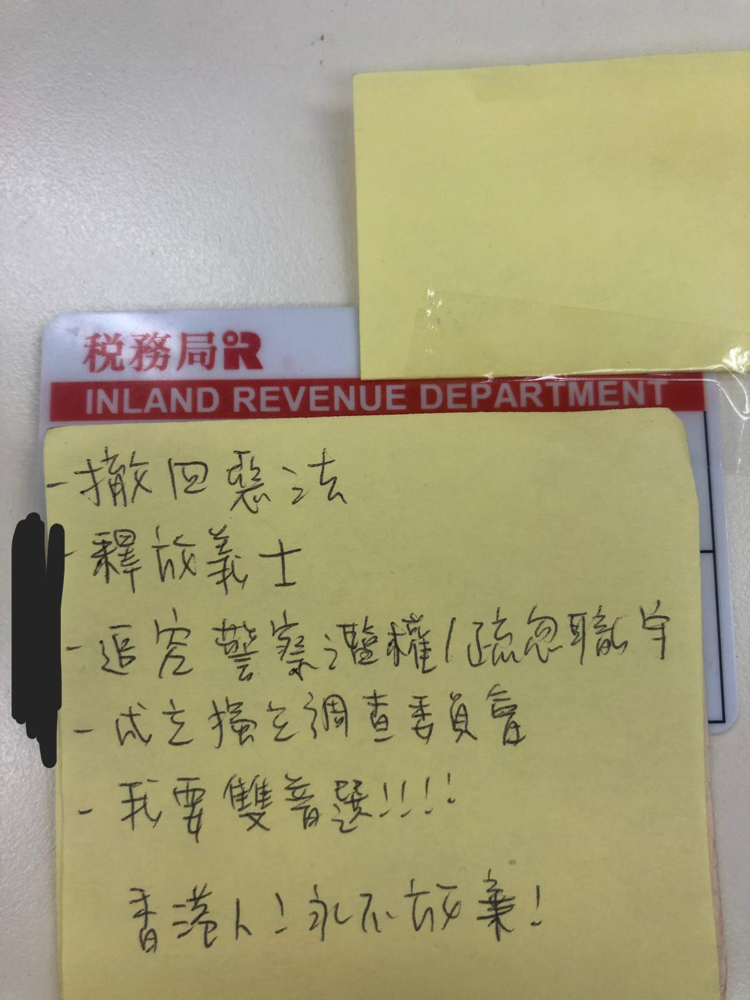 税務局
INLAND REVENUE DEPARTMENT
- 撤回惡法
- 釋放義士
- 追究警察濫權/疏忽職守
- 成立獨立調查委員會
- 我要雙普選!!!!
香港人!永不放棄!